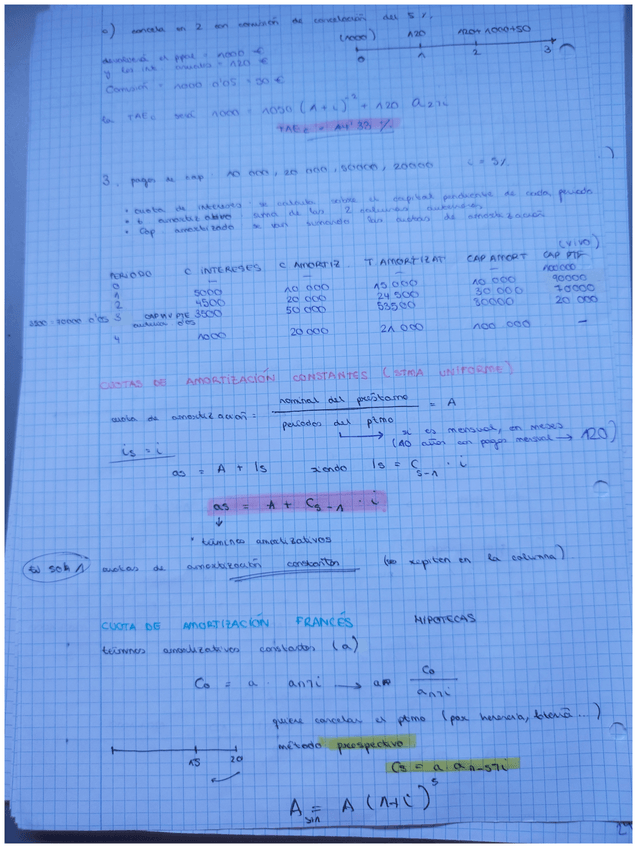 c) cancela en 2 con comisión de cancelación del 5%.
(1000) 120 120+1000+50
0 1 2 3
devolverá el ppal = 1000 €
y los int = 120 €
Comisión = 1000 0'05 = 50 €
la TAEc será 1000 = 1050 (1+i)⁻² + 120 a2¬i
TAEc = 14'32%
3. pagos de cap 10 000, 20 000, 50000, 20000 i = 5%
• cuota de intereses: se calcula sobre el capital pendiente de cada periodo
• t. amortizativo suma de las 2 columnas anteriores
• Cap amortizado: se van sumando las cuotas de amortización
(VIVO)
PERIODO C INTERESES C AMORTIZ T. AMORTIZAT CAP AMORT CAP PTE
0 — — — — 100000
1 5000 10 000 15 000 10 000 90000
2 4500 20 000 24 500 30 000 70000
3500 = 70000 0'05 3 CAP PTE 3500 50 000 53500 80000 20 000
anterior 0'05
4 1000 20 000 21 000 100 000 —
CUOTAS DE AMORTIZACIÓN CONSTANTES (STMA UNIFORME)
cuota de amortización = nominal del préstamo / periodos del ptmo = A
si es mensual, en meses
(10 años con pagos mensual → 120)
is = i
as = A + Is siendo Is = Cs-1 · i
as = A + Cs-1 · i
↓
• términos amortizativos
cuotas de amortización constantes (se repiten en la columna)
CUOTA DE AMORTIZACIÓN FRANCÉS HIPOTECAS
términos amortizativos constantes (a)
C0 = a · an¬i → a = C0 / an¬i
quiere cancelar el ptmo (por herencia, lotería...)
método prospectivo
15 20
Cs = a · an-s¬i
As+1 = A (1+i)ˢ